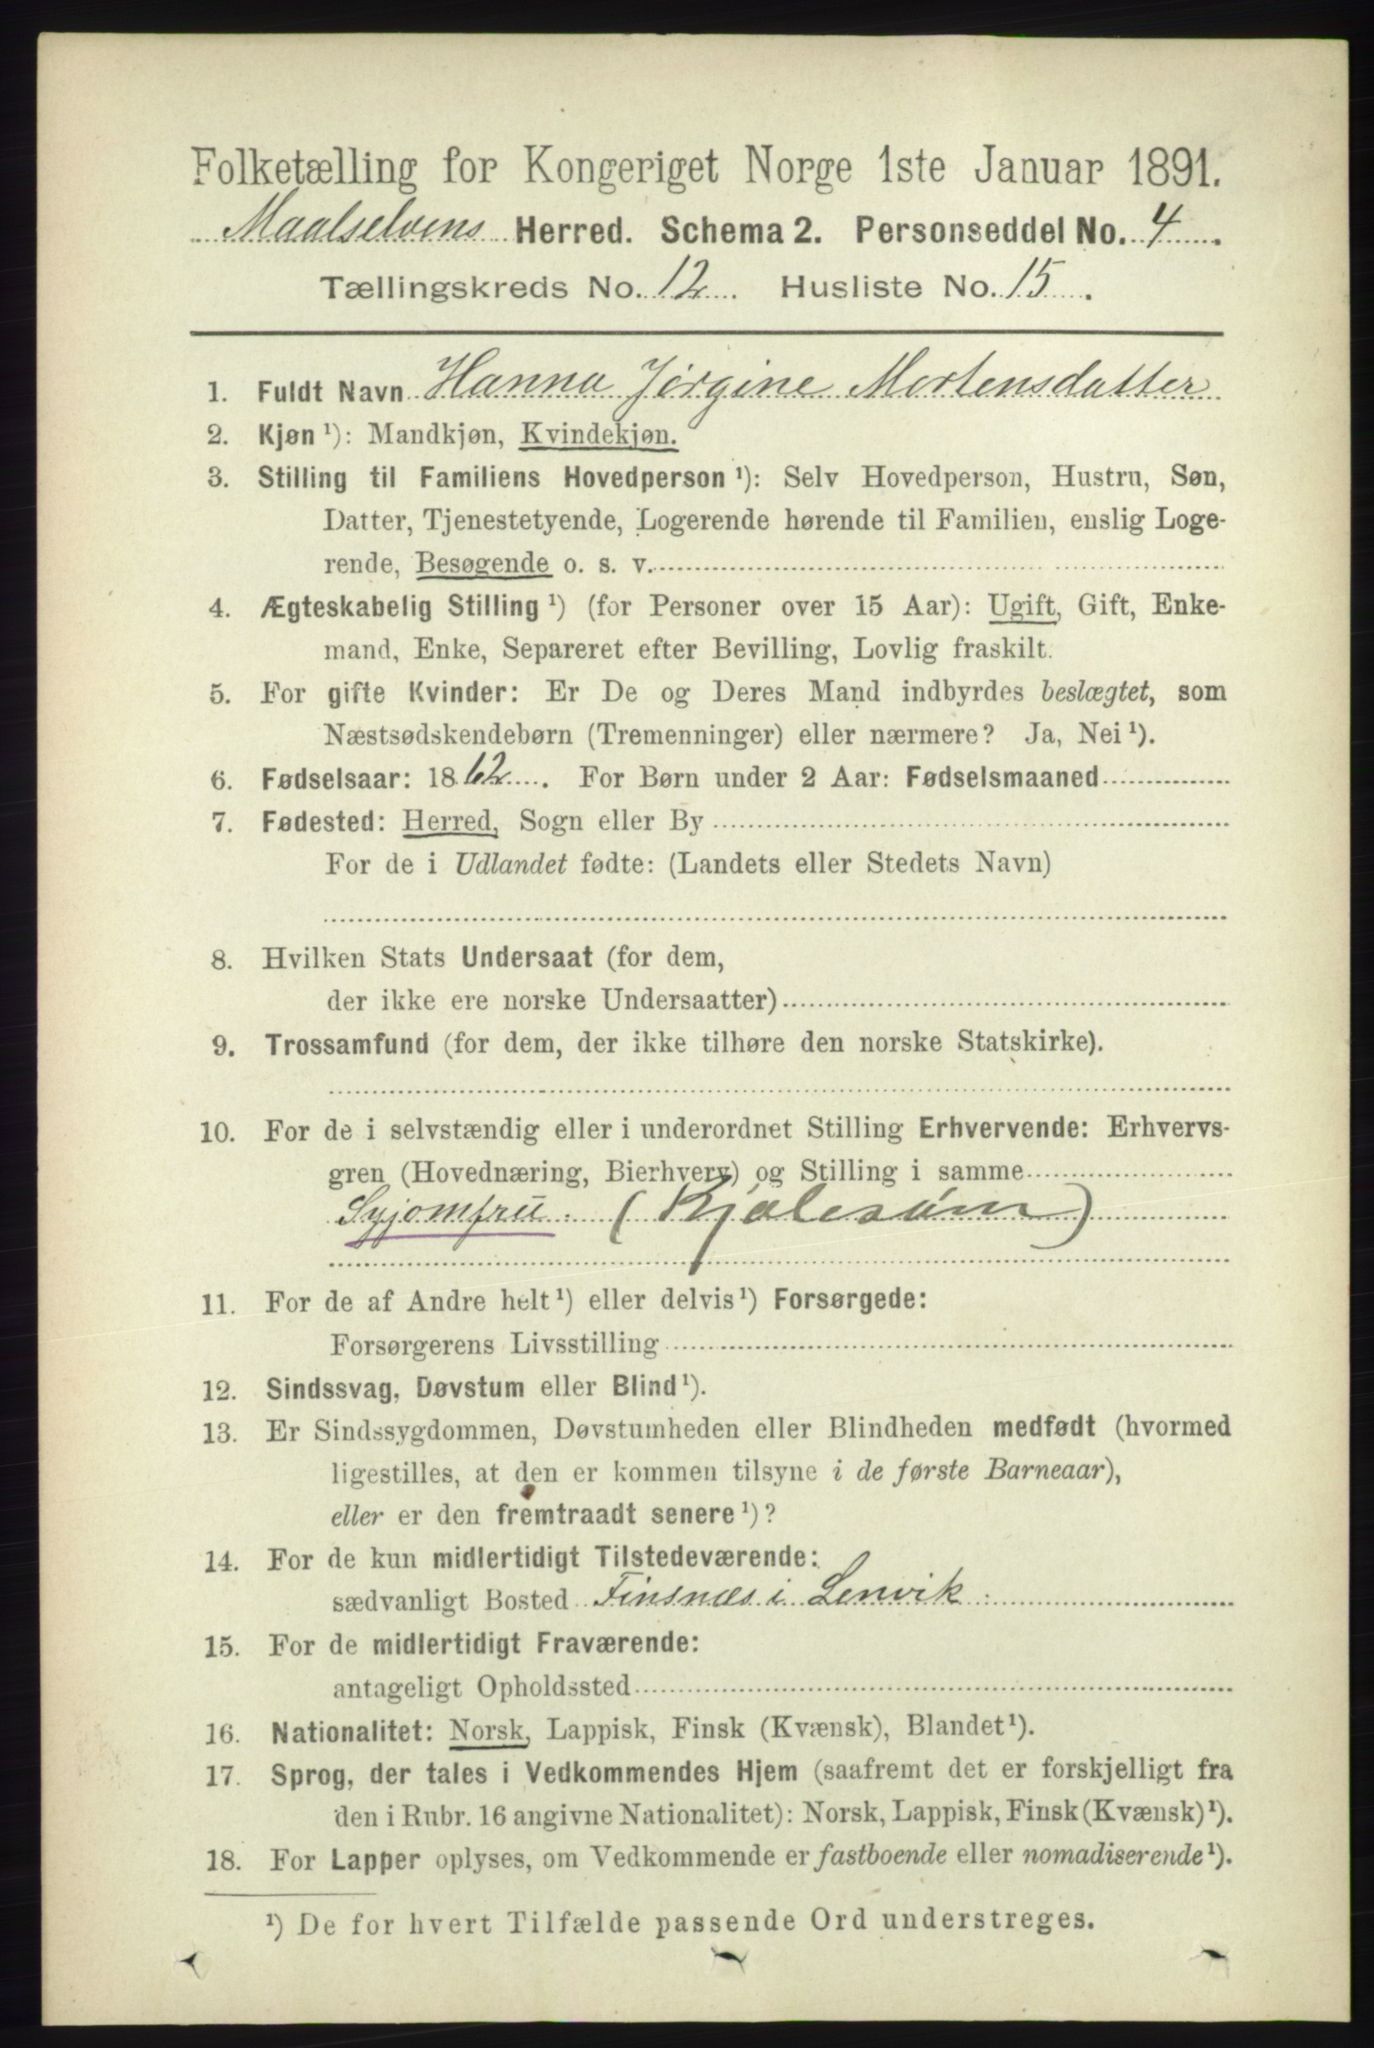 Folketælling for Kongeriget Norge 1ste Januar 1891.
Maalselvens Herred. Schema 2. Personseddel No. 4
Tællingskreds No. 12. Husliste No. 15.
1. Fuldt Navn Hanna Jörgine Mortensdatter
2. Kjøn ¹): Mandkjøn, Kvindekjøn.
3. Stilling til Familiens Hovedperson ¹): Selv Hovedperson, Hustru, Søn,
Datter, Tjenestetyende, Logerende hørende til Familien, enslig Loge-
rende, Besøgende o. s. v.
4. Ægteskabelig Stilling ¹) (for Personer over 15 Aar): Ugift, Gift, Enke-
mand, Enke, Separeret efter Bevilling, Lovlig fraskilt.
5. For gifte Kvinder: Er De og Deres Mand indbyrdes beslægtet, som
Næstsødskendebørn (Tremenninger) eller nærmere? Ja, Nei ¹).
6. Fødselsaar: 1862. For Børn under 2 Aar: Fødselsmaaned
7. Fødested: Herred, Sogn eller By
For de i Udlandet fødte: (Landets eller Stedets Navn)
8. Hvilken Stats Undersaat (for dem,
der ikke ere norske Undersaatter)
9. Trossamfund (for dem, der ikke tilhøre den norske Statskirke).
10. For de i selvstændig eller i underordnet Stilling Erhvervende: Erhvervs-
gren (Hovednæring, Bierhverv) og Stilling i samme
Syjomfru. (Kjolesøm)
11. For de af Andre helt ¹) eller delvis ¹) Forsørgede:
Forsørgerens Livsstilling
12. Sindssvag, Døvstum eller Blind ¹).
13. Er Sindssygdommen, Døvstumheden eller Blindheden medfødt (hvormed
ligestilles, at den er kommen tilsyne i de første Barneaar),
eller er den fremtraadt senere ¹)?
14. For de kun midlertidigt Tilstedeværende:
sædvanligt Bosted Finsnæs i Lenvik.
15. For de midlertidigt Fraværende:
antageligt Opholdssted
16. Nationalitet: Norsk, Lappisk, Finsk (Kvænsk), Blandet ¹).
17. Sprog, der tales i Vedkommendes Hjem (saafremt det er forskjelligt fra
den i Rubr. 16 angivne Nationalitet): Norsk, Lappisk, Finsk (Kvænsk) ¹).
18. For Lapper oplyses, om Vedkommende er fastboende eller nomadiserende ¹).
¹) De for hvert Tilfælde passende Ord understreges.